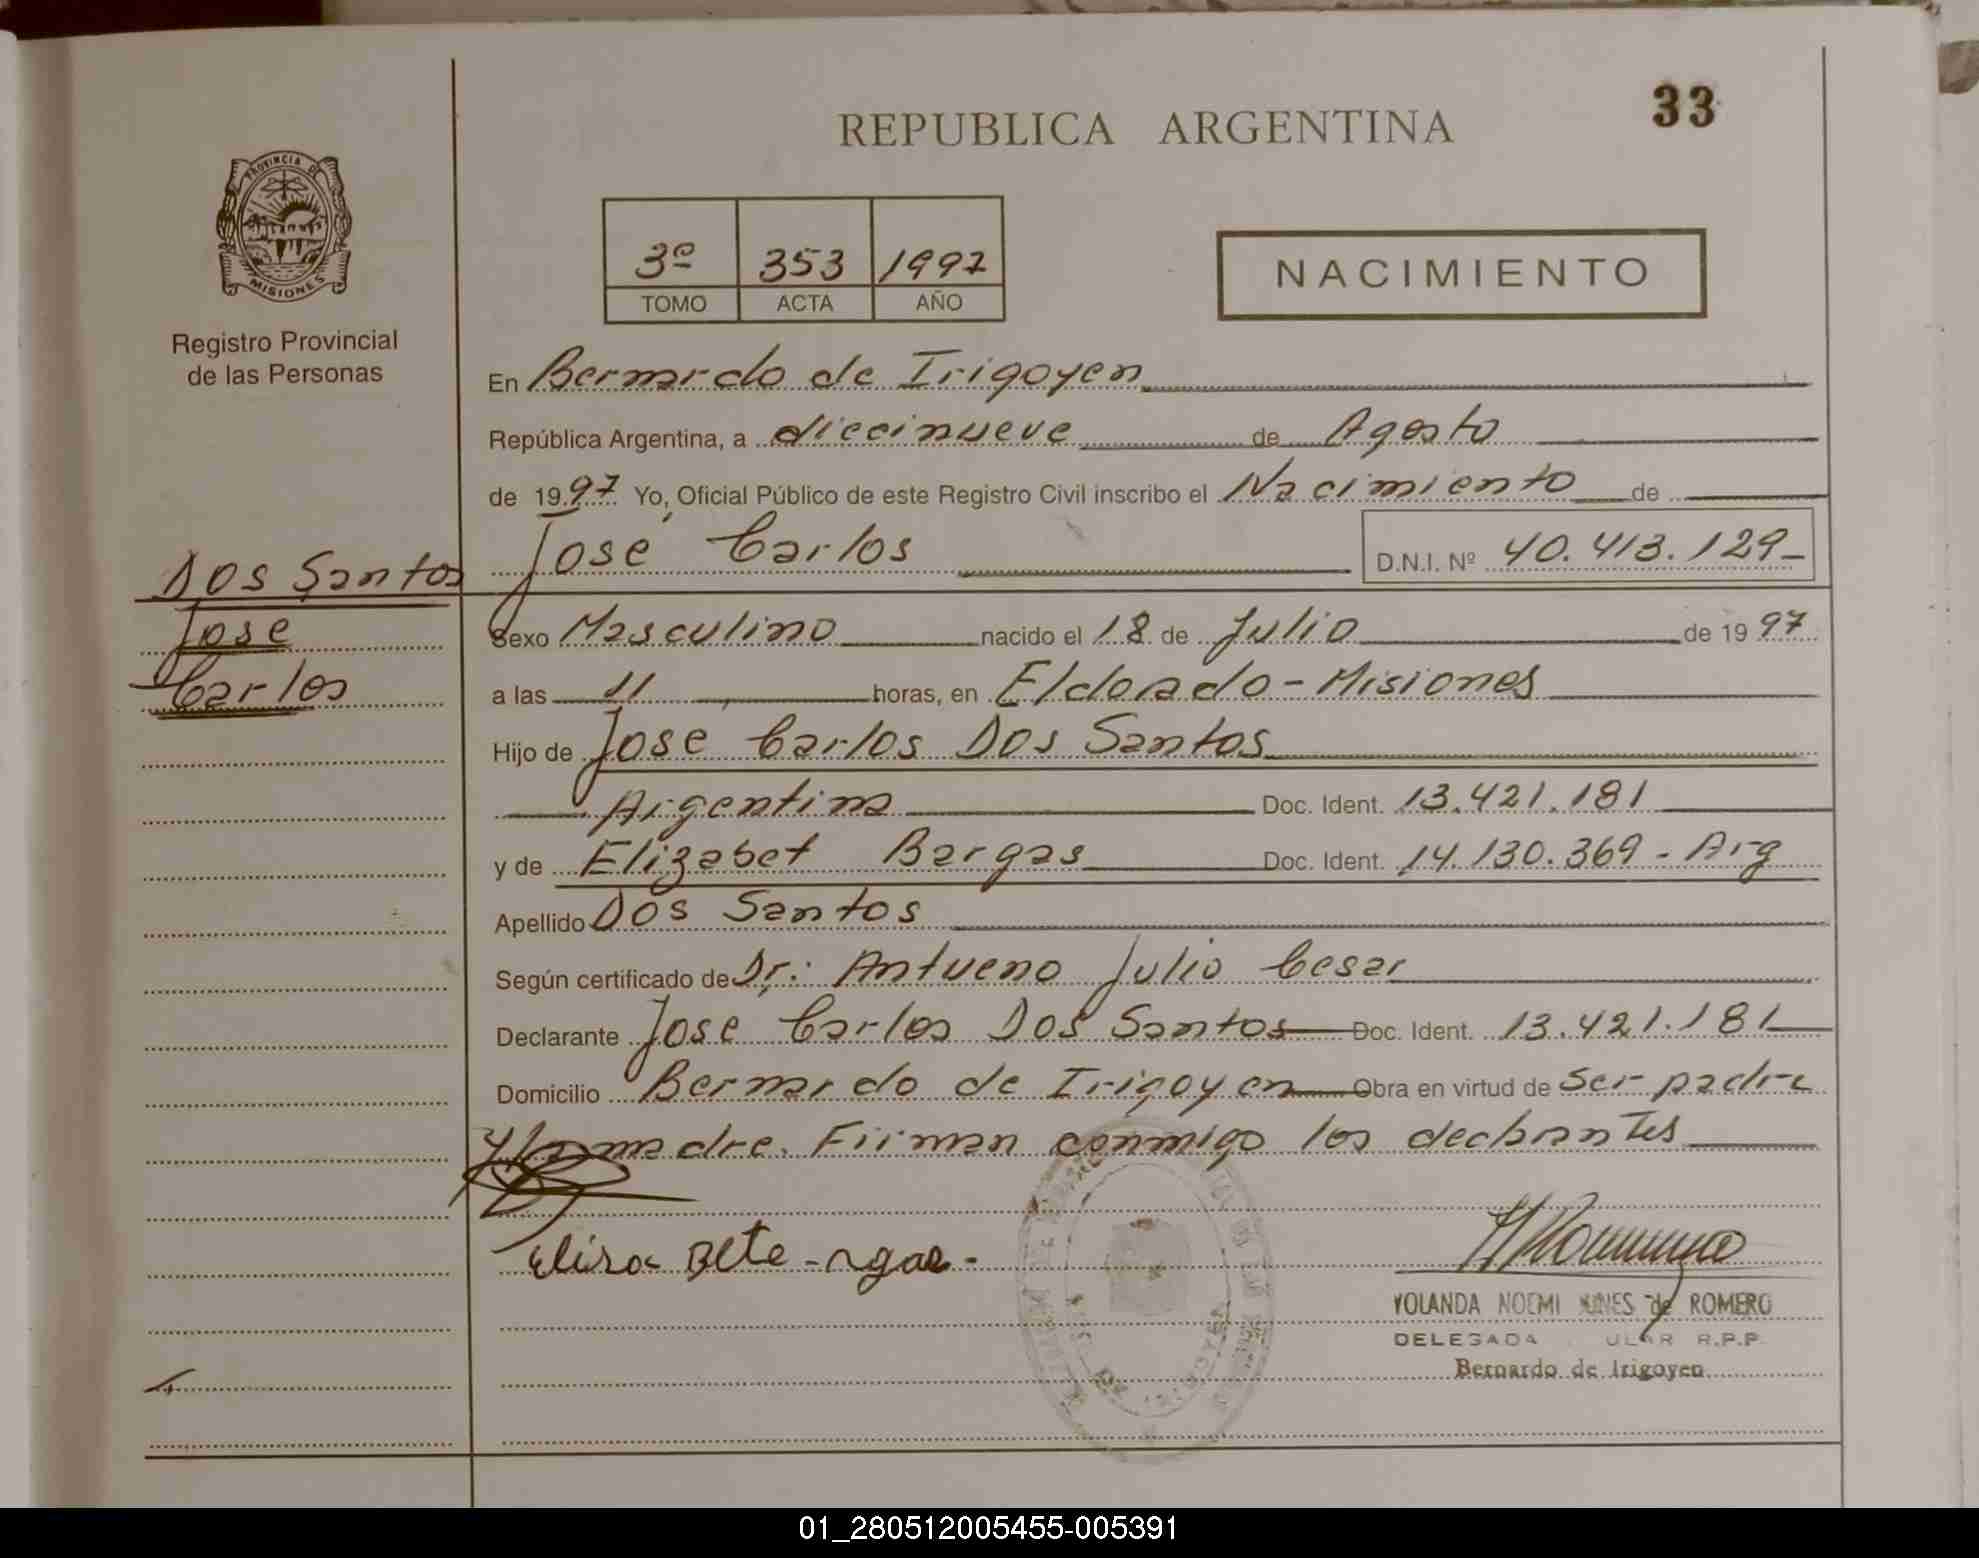 33
REPUBLICA ARGENTINA
PROVINCIA DE
MISIONES
Registro Provincial
de las Personas
3º 353 1997
TOMO ACTA AÑO
NACIMIENTO
En Bernardo de Irigoyen
República Argentina, a diecinueve de Agosto
de 1997 Yo, Oficial Público de este Registro Civil inscribo el Nacimiento de
José Carlos D.N.I. Nº 40.413.129
Dos Santos
Jose
Carlos
Sexo Masculino nacido el 18 de Julio de 1997
a las 11 horas, en Eldorado - Misiones
Hijo de Jose Carlos Dos Santos
Argentina Doc. Ident. 13.421.181
y de Elizabet Bargas Doc. Ident. 14.130.369 - Arg
Apellido Dos Santos
Según certificado de Dr.: Antueno Julio Cesar
Declarante Jose Carlos Dos Santos Doc. Ident. 13.421.181
Domicilio Bernardo de Irigoyen Obra en virtud de Ser padre
y la madre. Firman conmigo los declarantes
YOLANDA NOEMI de ROMERO
DELEGADA R.P.P.
Bernardo de Irigoyen
01_280512005455-005391